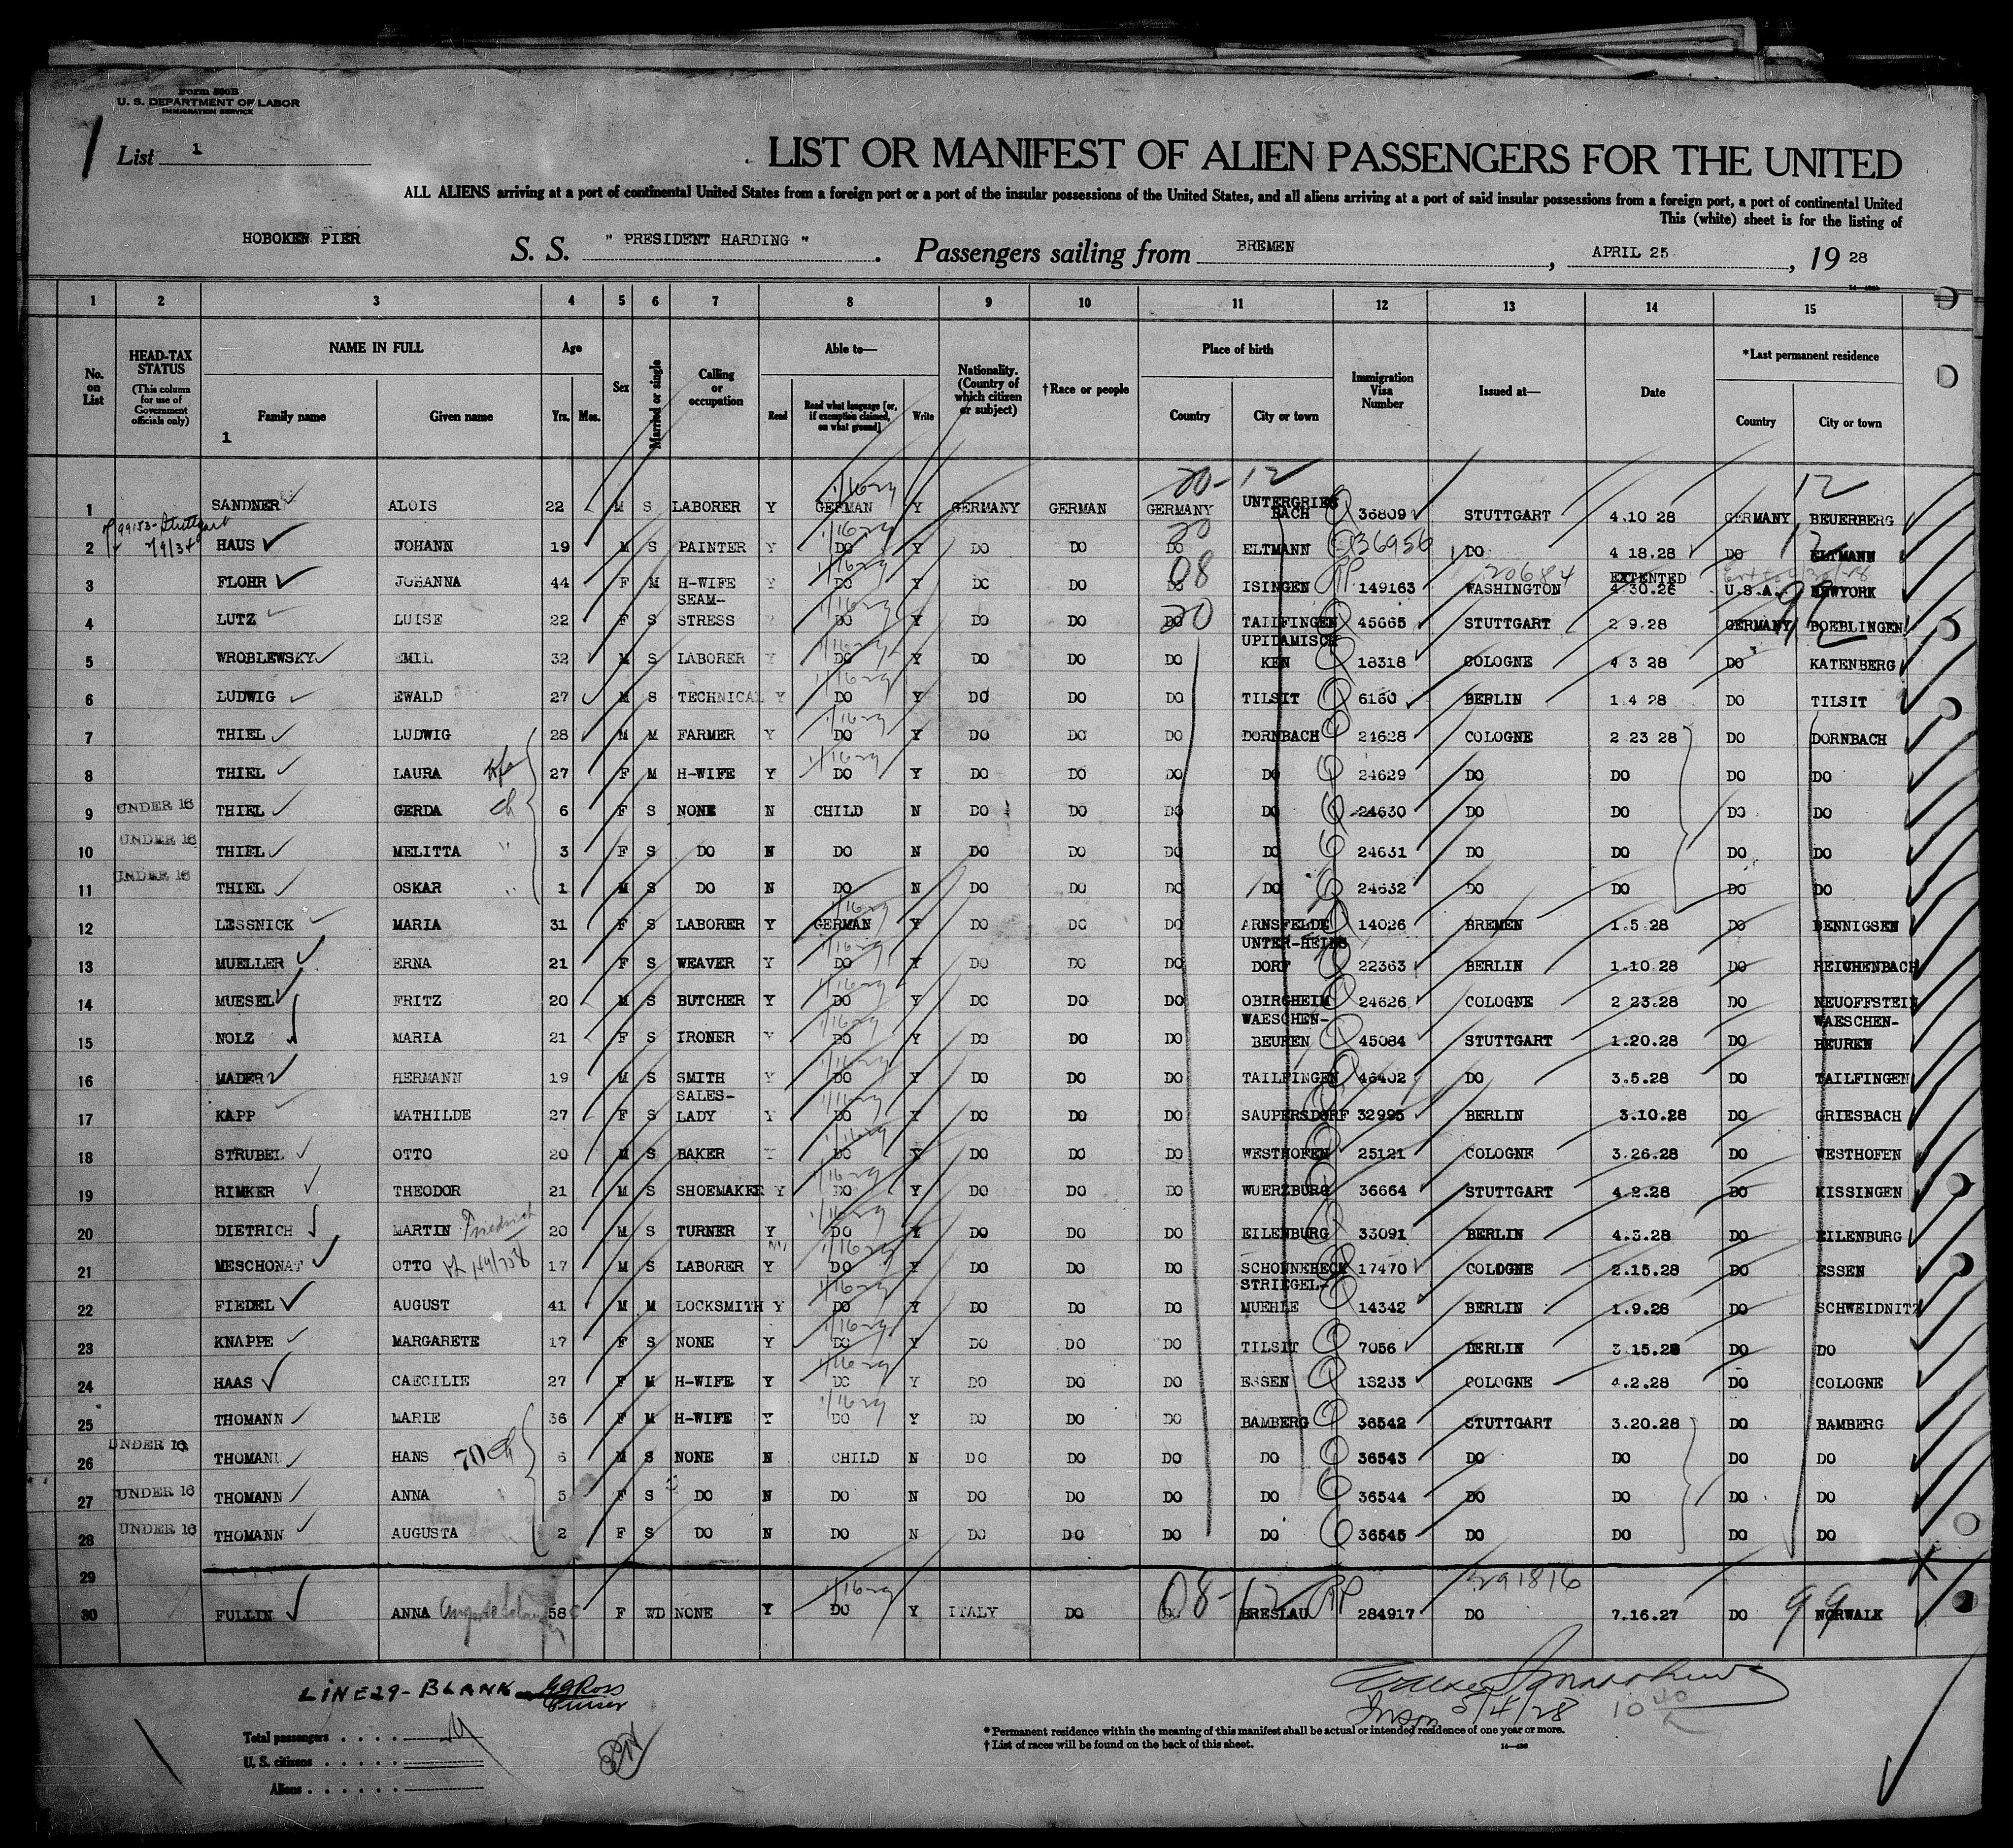 Form 500B
U. S. DEPARTMENT OF LABOR
IMMIGRATION SERVICE
1 List 1
LIST OR MANIFEST OF ALIEN PASSENGERS FOR THE UNITED
ALL ALIENS arriving at a port of continental United States from a foreign port or a port of the insular possessions of the United States, and all aliens arriving at a port of said insular possessions from a foreign port, a port of continental United
This (white) sheet is for the listing of
HOBOKEN PIER S. S. " PRESIDENT HARDING ". Passengers sailing from BREMEN, APRIL 25, 19 28
1 2 3 4 5 6 7 8 9 10 11 12 13 14 15
No. on List
HEAD-TAX STATUS (This column for use of Government officials only)
NAME IN FULL Family name Given name
Age Yrs. Mos.
Sex
Married or single
Calling or occupation
Able to— Read Read what language [or, if exemption claimed, on what ground] Write
Nationality. (Country of which citizen or subject)
† Race or people
Place of birth Country City or town
Immigration Visa Number
Issued at—
Date
*Last permanent residence Country City or town
1
20-12 12
1 SANDNER ALOIS 22 M S LABORER Y GERMAN Y GERMANY GERMAN GERMANY UNTERGRIES BACH 36809 STUTTGART 4.10 28 GERMANY BEUERBERG
99153-Stuttgart
2 HAUS JOHANN 19 M S PAINTER Y DO Y DO DO DO ELTMANN 136956 DO 4 18.28 DO ELTMANN
3 FLOHR JOHANNA 44 F M H-WIFE Y DO Y DO DO DO ISINGEN PP 149163 20684 WASHINGTON EXTENTED 4 30.26 U.S.A. NEWYORK 99
4 LUTZ LUISE 22 F S SEAM-STRESS DO Y DO DO DO TAILFINGEN 45665 STUTTGART 2 9.28 GERMANY BOEBLINGEN
5 WROBLEWSKY EMIL 32 M S LABORER Y DO Y DO DO DO UPIDAMISCH KEN 18318 COLOGNE 4 3 28 DO KATENBERG
6 LUDWIG EWALD 27 M S TECHNICAL Y DO Y DO DO DO TILSIT 6150 BERLIN 1 4 28 DO TILSIT
7 THIEL LUDWIG 28 M M FARMER Y DO Y DO DO DO DORNBACH 24628 COLOGNE 2 23 28 DO DORNBACH
8 THIEL LAURA wfe 27 F M H-WIFE Y DO Y DO DO DO DO 24629 DO DO DO DO
9 UNDER 16 THIEL GERDA ch 6 F S NONE N CHILD N DO DO DO DO 24630 DO DO DO DO
10 UNDER 16 THIEL MELITTA " 3 F S DO N DO N DO DO DO DO 24631 DO DO DO DO
11 UNDER 16 THIEL OSKAR " 1 M S DO N DO N DO DO DO DO 24632 DO DO DO DO
12 LESSNICK MARIA 31 F S LABORER Y GERMAN Y DO DO DO ARNSFELDE 14026 BREMEN 1.5 28 DO BENNIGSEN
13 MUELLER ERNA 21 F S WEAVER Y DO Y DO DO DO UNTER-HEINS DORF 22363 BERLIN 1.10.28 DO REICHENBACH
14 MUESEL FRITZ 20 M S BUTCHER Y DO Y DO DO DO OBIRGHEIM 24626 COLOGNE 2 23.28 DO NEUOFFSTEIN
15 NOLZ MARIA 21 F S IRONER Y DO Y DO DO DO WAESCHEN-BEUREN 45084 STUTTGART 1.20.28 DO WAESCHEN-BEUREN
16 MADER HERMANN 19 M S SMITH Y DO Y DO DO DO TAILFINGEN 46402 DO 3.5.28 DO TAILFINGEN
17 KAPP MATHILDE 27 F S SALES-LADY Y DO Y DO DO DO SAUPERSDORF 32995 BERLIN 3.10.28 DO GRIESBACH
18 STRUBEL OTTO 20 M S BAKER Y DO Y DO DO DO WESTHOFEN 25121 COLOGNE 3.26.28 DO WESTHOFEN
19 RIMKER THEODOR 21 M S SHOEMAKER Y DO Y DO DO DO WUERZBURG 36664 STUTTGART 4.2.28 DO KISSINGEN
20 DIETRICH MARTIN Friedrich 20 M S TURNER Y DO Y DO DO DO EILENBURG 33091 BERLIN 4.3.28 DO EILENBURG
21 MESCHONAT OTTO 17 M S LABORER Y DO Y DO DO DO SCHONNEBECK 17470 COLOGNE 2.15.28 DO ESSEN
22 FIEDEL AUGUST 41 M M LOCKSMITH Y DO Y DO DO DO STRIEGEL-MUEHLE 14342 BERLIN 1.9.28 DO SCHWEIDNITZ
23 KNAPPE MARGARETE 17 F S NONE Y DO Y DO DO DO TILSIT 7056 BERLIN 3 15.28 DO DO
24 HAAS CAECILIE 27 F M H-WIFE Y DO Y DO DO DO ESSEN 18283 COLOGNE 4.2.28 DO COLOGNE
25 THOMANN MARIE 36 F M H-WIFE Y DO Y DO DO DO BAMBERG 36542 STUTTGART 3.20.28 DO BAMBERG
26 UNDER 16 THOMANN HANS 70 ch 6 M S NONE N CHILD N DO DO DO DO 36543 DO DO DO DO
27 UNDER 16 THOMANN ANNA 5 F S DO N DO N DO DO DO DO 36544 DO DO DO DO
28 UNDER 16 THOMANN AUGUSTA 2 F S DO N DO N DO DO DO DO 36545 DO DO DO DO
29
30 FULLIN ANNA 58 F WD NONE Y DO Y ITALY DO DO 08-12 BRESLAU PP 284917 291816 DO 7.16.27 DO 99 NORWALK
LINE 29 - BLANK EGRoss Purser
5/4/28 10 40
Total passengers
U. S. citizens
Aliens
* Permanent residence within the meaning of this manifest shall be actual or intended residence of one year or more.
† List of races will be found on the back of this sheet.